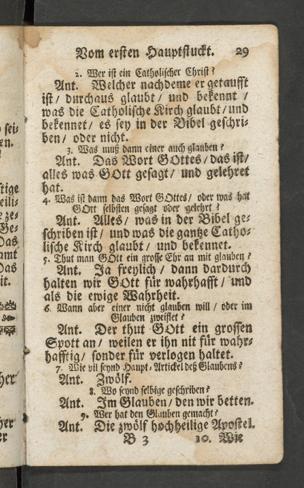 Vom ersten Hauptstuckt. 29
2. Wer ist ein Catholischer Christ?
Ant. Welcher nachdeme er getaufft
ist/ durchaus glaubt/ und bekennt/
was die Catholische Kirch glaubt/ und
bekennet/ es sey in der Bibel geschri-
ben/ oder nicht.
3. Was muß dann einer auch glauben?
Ant. Das Wort GOttes/ das ist/
alles was GOtt gesagt/ und gelehret
hat.
4. Was ist dann das Wort GOttes/ oder was hat
GOtt selbsten gesagt oder gelehrt?
Ant. Alles/ was in der Bibel ge-
schriben ist/ und was die gantze Catho-
lische Kirch glaubt/ und bekennet.
5. Thut man GOtt ein grosse Ehr an mit glauben?
Ant. Ja freylich/ dann dardurch
halten wir GOtt für wahrhafft/ und
als die ewige Wahrheit.
6. Wann aber einer nicht glauben will/ oder im
Glauben zweiflet?
Ant. Der thut GOtt ein grossen
Spott an/ weilen er ihn nit für wahr-
hafftig/ sonder für verlogen haltet.
7. Wie vil seynd Haupt-Artickel deß Glaubens?
Ant. Zwölf.
8. Wo seynd selbige geschriben?
Ant. Im Glauben/ den wir betten.
9. Wer hat den Glauben gemacht?
Ant. Die zwölf hochheilige Apostel.
B 3 10. Wie